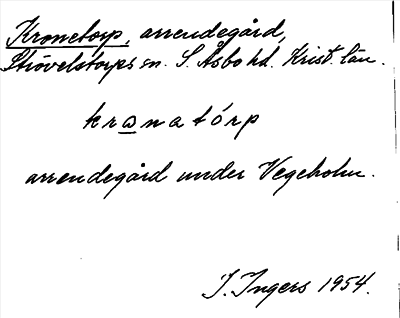 Kronetorp, arrendegård,
Strövelstorps sn. S. Åsbo hd. Krist. län.
kranatórp
arrendegård under Vegeholm.
I. Ingers 1954.